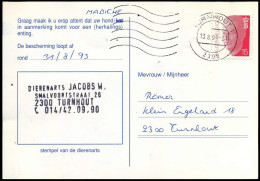 MABICHE
Graag maak ik u erop attent dat uw hond
in aanmerking komt voor een (herhalings)
enting.
De bescherming loopt af
rond 31/8/93
DIERENARTS JACOBS W.
SMALVOORTSTRAAT 26
2300 TURNHOUT
014/42.09.90
stempel van de dierenarts
TURNHOUT
2300
Mevrouw / Mijnheer
Römer
Klein Engeland 18
2300 Turnhout